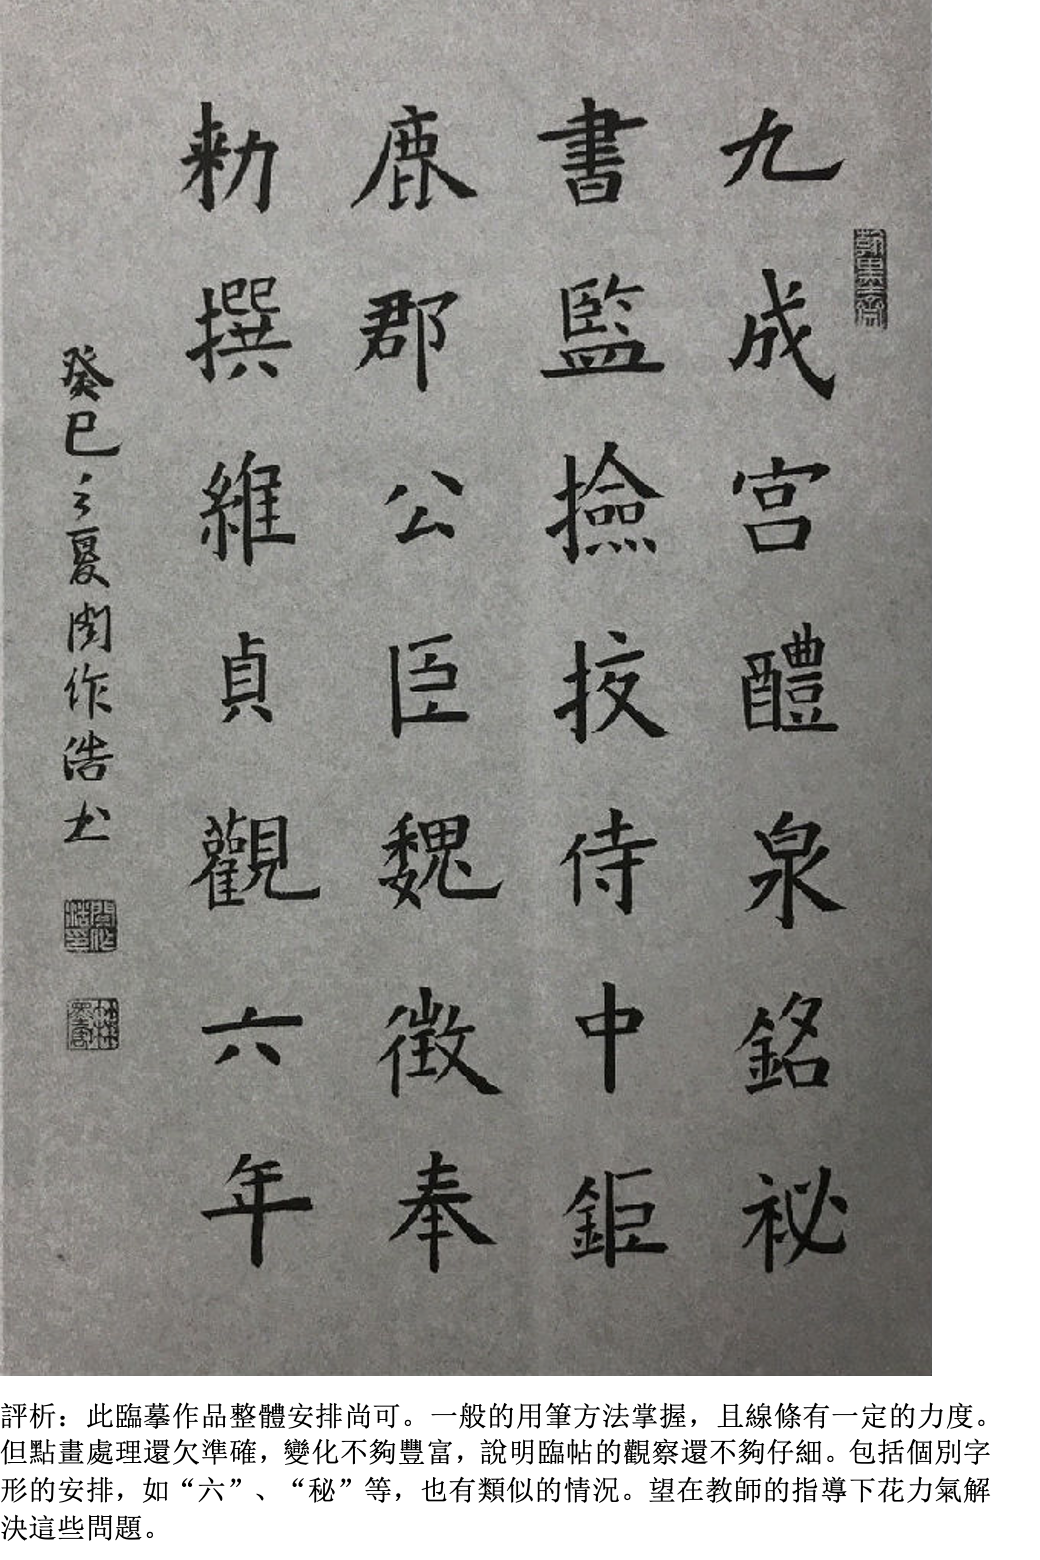 九成宫醴泉銘祕
書監撿挍侍中鉅
鹿郡公臣魏徵奉
勅撰維貞觀六年
癸巳之夏閏作浩书
評析：此臨摹作品整體安排尚可。一般的用筆方法掌握，且線條有一定的力度。
但點畫處理還欠準確，變化不夠豐富，說明臨帖的觀察還不夠仔細。包括個別字
形的安排，如“六”、“秘”等，也有類似的情況。望在教師的指導下花力氣解
決這些問題。